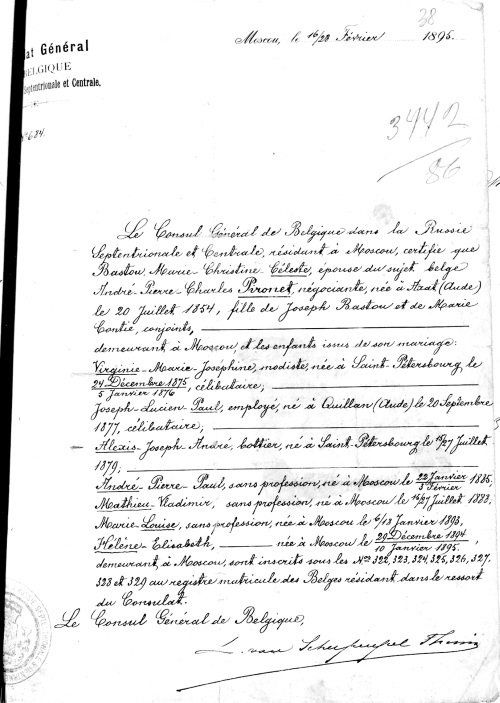 38
Moscou, le 16/28 Février 1895.
at Général
BELGIQUE
Septentrionale et Centrale.
N° 684.
3442
86
Le Consul Général de Belgique dans la Russie
Septentrionale et Centrale, résidant à Moscou, certifie que
Bastou, Marie Christine-Céleste, épouse du sujet belge
André-Pierre-Charles Pironet, négociante, née à Axat (Aude)
le 20 Juillet 1854, fille de Joseph Bastou et de Marie
Contié, conjoints,
demeurant à Moscou, et les enfants issus de son mariage:
Virginie-Marie-Josephine, modiste, née à Saint-Pétersbourg, le
24 Décembre 1875, célibataire;
5 Janvier 1876
Joseph-Lucien-Paul, employé, né à Quillan (Aude) le 20 Septembre
1877, célibataire;
Alexis-Joseph-André, bottier, né à Saint-Pétersbourg le 15/27 Juillet
1879;
André-Pierre-Paul, sans profession, né à Moscou le 22 Janvier 1885,
3 Février
Mathieu-Vladimir, sans profession, né à Moscou le 15/27 Juillet 1883,
Marie-Louise, sans profession, née à Moscou le 6/18 Janvier 1893,
Hélène-Elisabeth, née à Moscou le 29 Décembre 1894
10 Janvier 1895.
demeurant, à Moscou, sont inscrits sous les Nos 322, 323, 324, 325, 326, 327,
328 et 329 au registre matricule des Belges résidant dans le ressort
du Consulat.
Le Consul Général de Belgique,
L. van